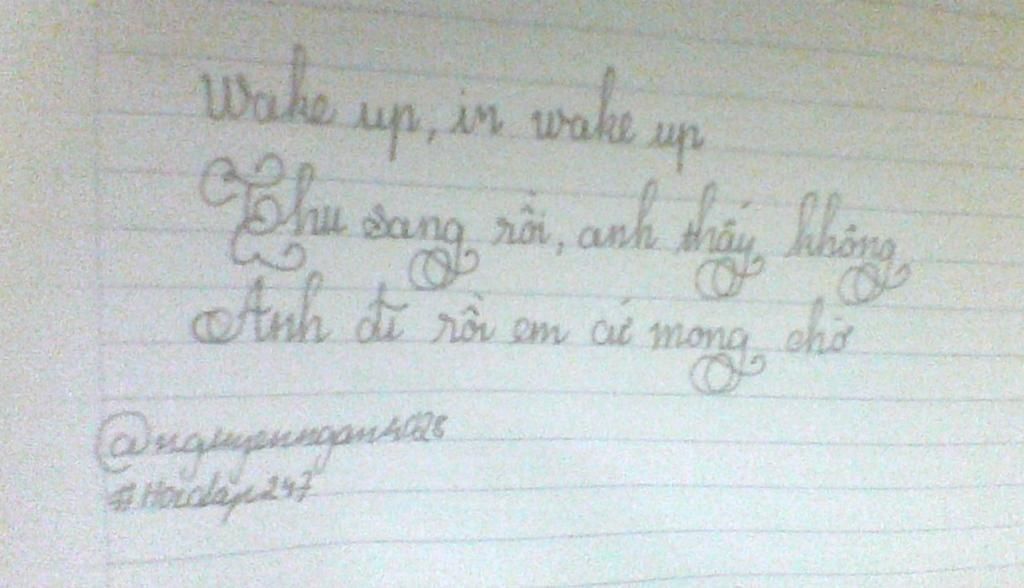 Wake up, in wake up
Thu sang rồi, anh thấy không
Anh đi rồi em cứ mong chờ
@nguyenngan4028
#Hoidap247